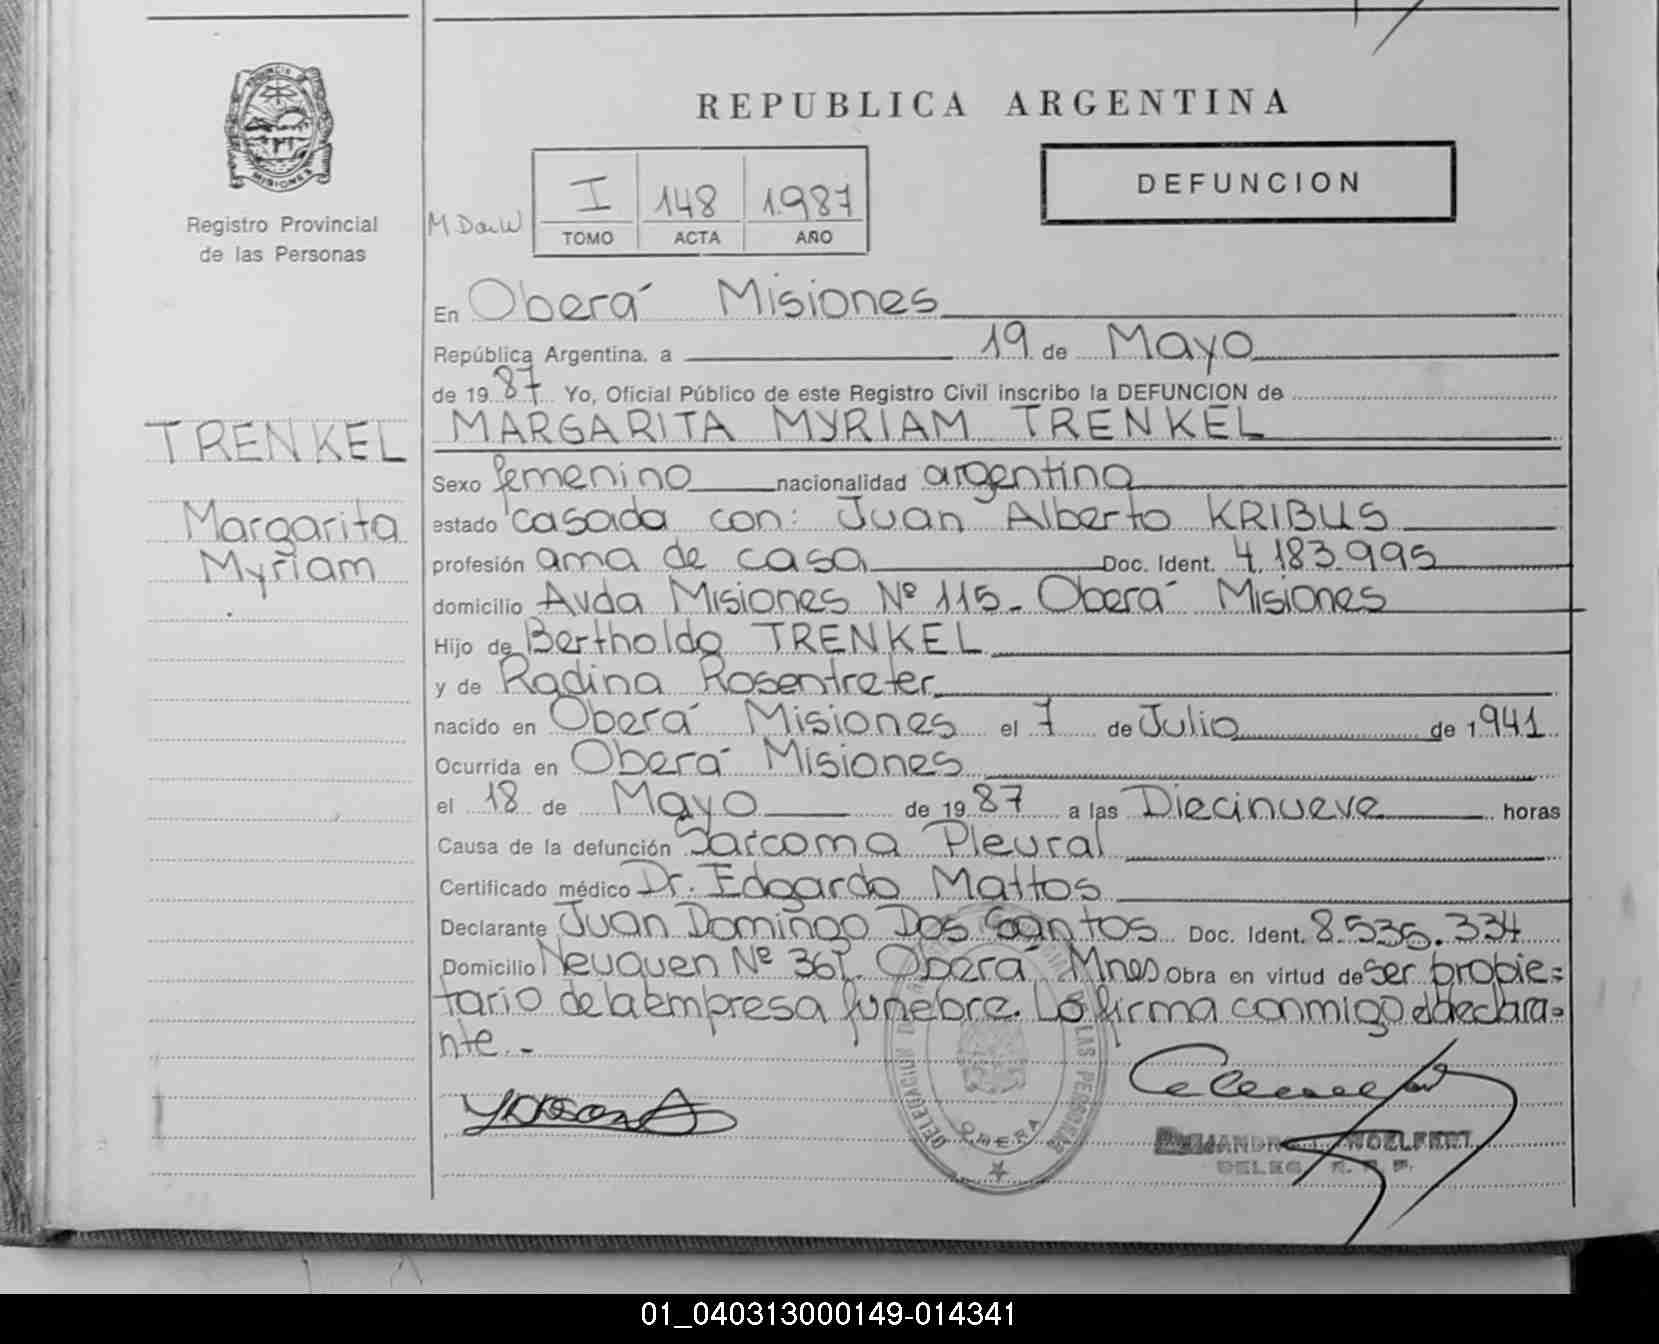 REPUBLICA ARGENTINA
DEFUNCION
PROVINCIA D
MISIONES
Registro Provincial
de las Personas
I 148 1.987
TOMO ACTA AÑO
En Oberá Misiones
República Argentina, a 19 de Mayo
de 1987 Yo, Oficial Público de este Registro Civil inscribo la DEFUNCION de
MARGARITA MYRIAM TRENKEL
TRENKEL
Margarita
Myriam
Sexo femenino nacionalidad argentina
estado casada con: Juan Alberto KRIBUS
profesión ama de casa Doc. Ident. 4.183.995
domicilio Avda Misiones Nº 115- Oberá Misiones
Hijo de Bertholdo TRENKEL
y de Radina Rosentreter
nacido en Oberá Misiones el 7 de Julio de 1941
Ocurrida en Oberá Misiones
el 18 de Mayo de 1987 a las Diecinueve horas
Causa de la defunción Sarcoma Pleural
Certificado médico Dr. Edgardo Mattos
Declarante Juan Domingo Dos Santos Doc. Ident. 8.535.334
Domicilio Neuquen Nº 367. Oberá Mnes Obra en virtud de ser propie=
tario de la empresa funebre. Lo firma conmigo el declara=
nte.-
LAS PERSONAS
OBERA
DELEG. R. P. P.
01_040313000149-014341